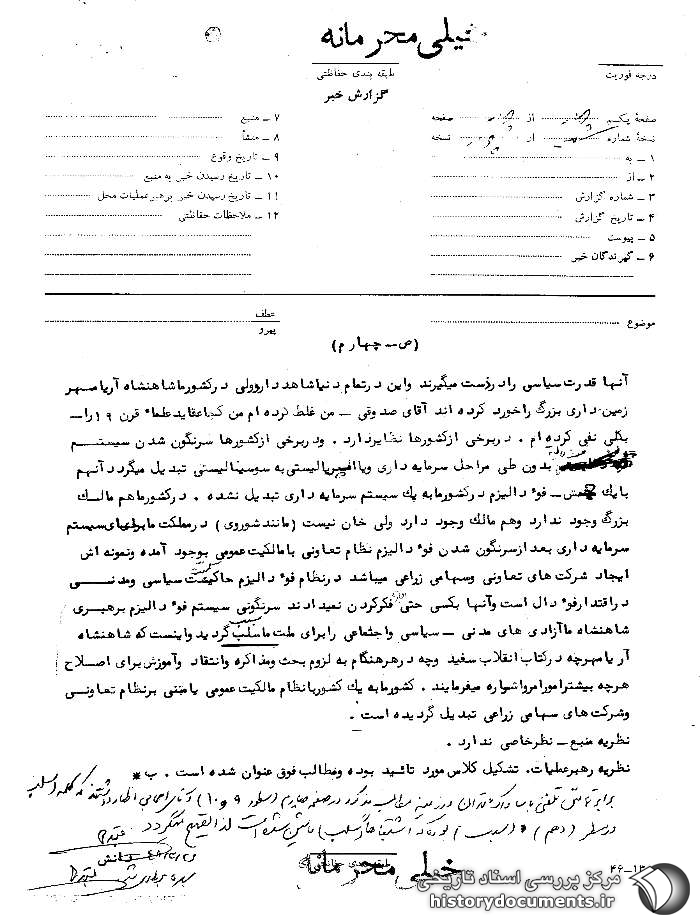 خیلی محرمانه
درجه فوریت
طبقه بندی حفاظتی
گزارش خبر
صفحهٔ یکم از صفحه
نسخهٔ شماره از نسخه
۱ ـ به
۲ ـ از
۳ ـ شماره گزارش
۴ ـ تاریخ گزارش
۵ ـ پیوست
۶ ـ گیرندگان خبر
۷ ـ منبع
۸ ـ منشأ
۹ ـ تاریخ وقوع
۱۰ ـ تاریخ رسیدن خبر به منبع
۱۱ ـ تاریخ رسیدن خبر برهبر عملیات محل
۱۲ ـ ملاحظات حفاظتی
موضوع
عطف
پیرو
(ص ـ چهارم)
آنها قدرت سیاسی را در دست میگیرند و این در تمام دنیا شاهد دارد ولی در کشور ما شاهنشاه آریامهر
زمین داری بزرگ را خورد کرده اند آقای صدوقی ـ من غلط کرده ام من کجا عقاید علماء قرن ۱۹ را ـ
بکلی نفی کرده ام . در برخی از کشورها نظایر دارد . و در برخی از کشورها سرنگون شدن سیستم
بدون طی مراحل سرمایه داری و یا امپریالیستی به سوسیالیستی تبدیل میگردد آنهم
با یک ـ فوٴدالیزم در کشور ما به یک سیستم سرمایه داری تبدیل نشده . در کشور ما هم مالک
بزرگ وجود ندارد و هم مالک وجود دارد ولی خان نیست (مانند شوروی) در مملکت ما برای سیستم
سرمایه داری بعد از سرنگون شدن فوٴدالیزم نظام تعاونی با مالکیت عمومی بوجود آمده و نمونه اش
ایجاد شرکت های تعاونی و سهامی زراعی میباشد در نظام فوٴدالیزم حاکمیت سیاسی و مدنی
در اقتدار فوٴدال است و آنها بکسی حتی فکر کردن نمیدادند سرنگونی سیستم فوٴدالیزم برهبری
شاهنشاه ما آزادی های مدنی ـ سیاسی و اجتماعی را برای ملت ما سلب گردید و اینست که شاهنشاه
آریامهر چه در کتاب انقلاب سفید و چه در هر هنگام به لزوم بحث و مذاکره و انتقاد و آموزش برای اصلاح
هر چه بیشتر امور امر و اشواره میفرمایند . کشور ما به یک کشور با نظام مالکیت عمومی یا مبنی بر نظام تعاونی
و شرکت های سهامی زراعی تبدیل گردیده است .
نظریه منبع ـ نظر خاصی ندارد .
نظریه رهبر عملیات. تشکیل کلاس مورد تائید بوده و مطالب فوق عنوان شده است . ب*
در سطر (دهم)
دانش
خیلی محرمانه
طبقه بندی حفاظتی
۱۲ـ۴۶
مرکز بررسی اسناد تاریخی
historydocuments.ir